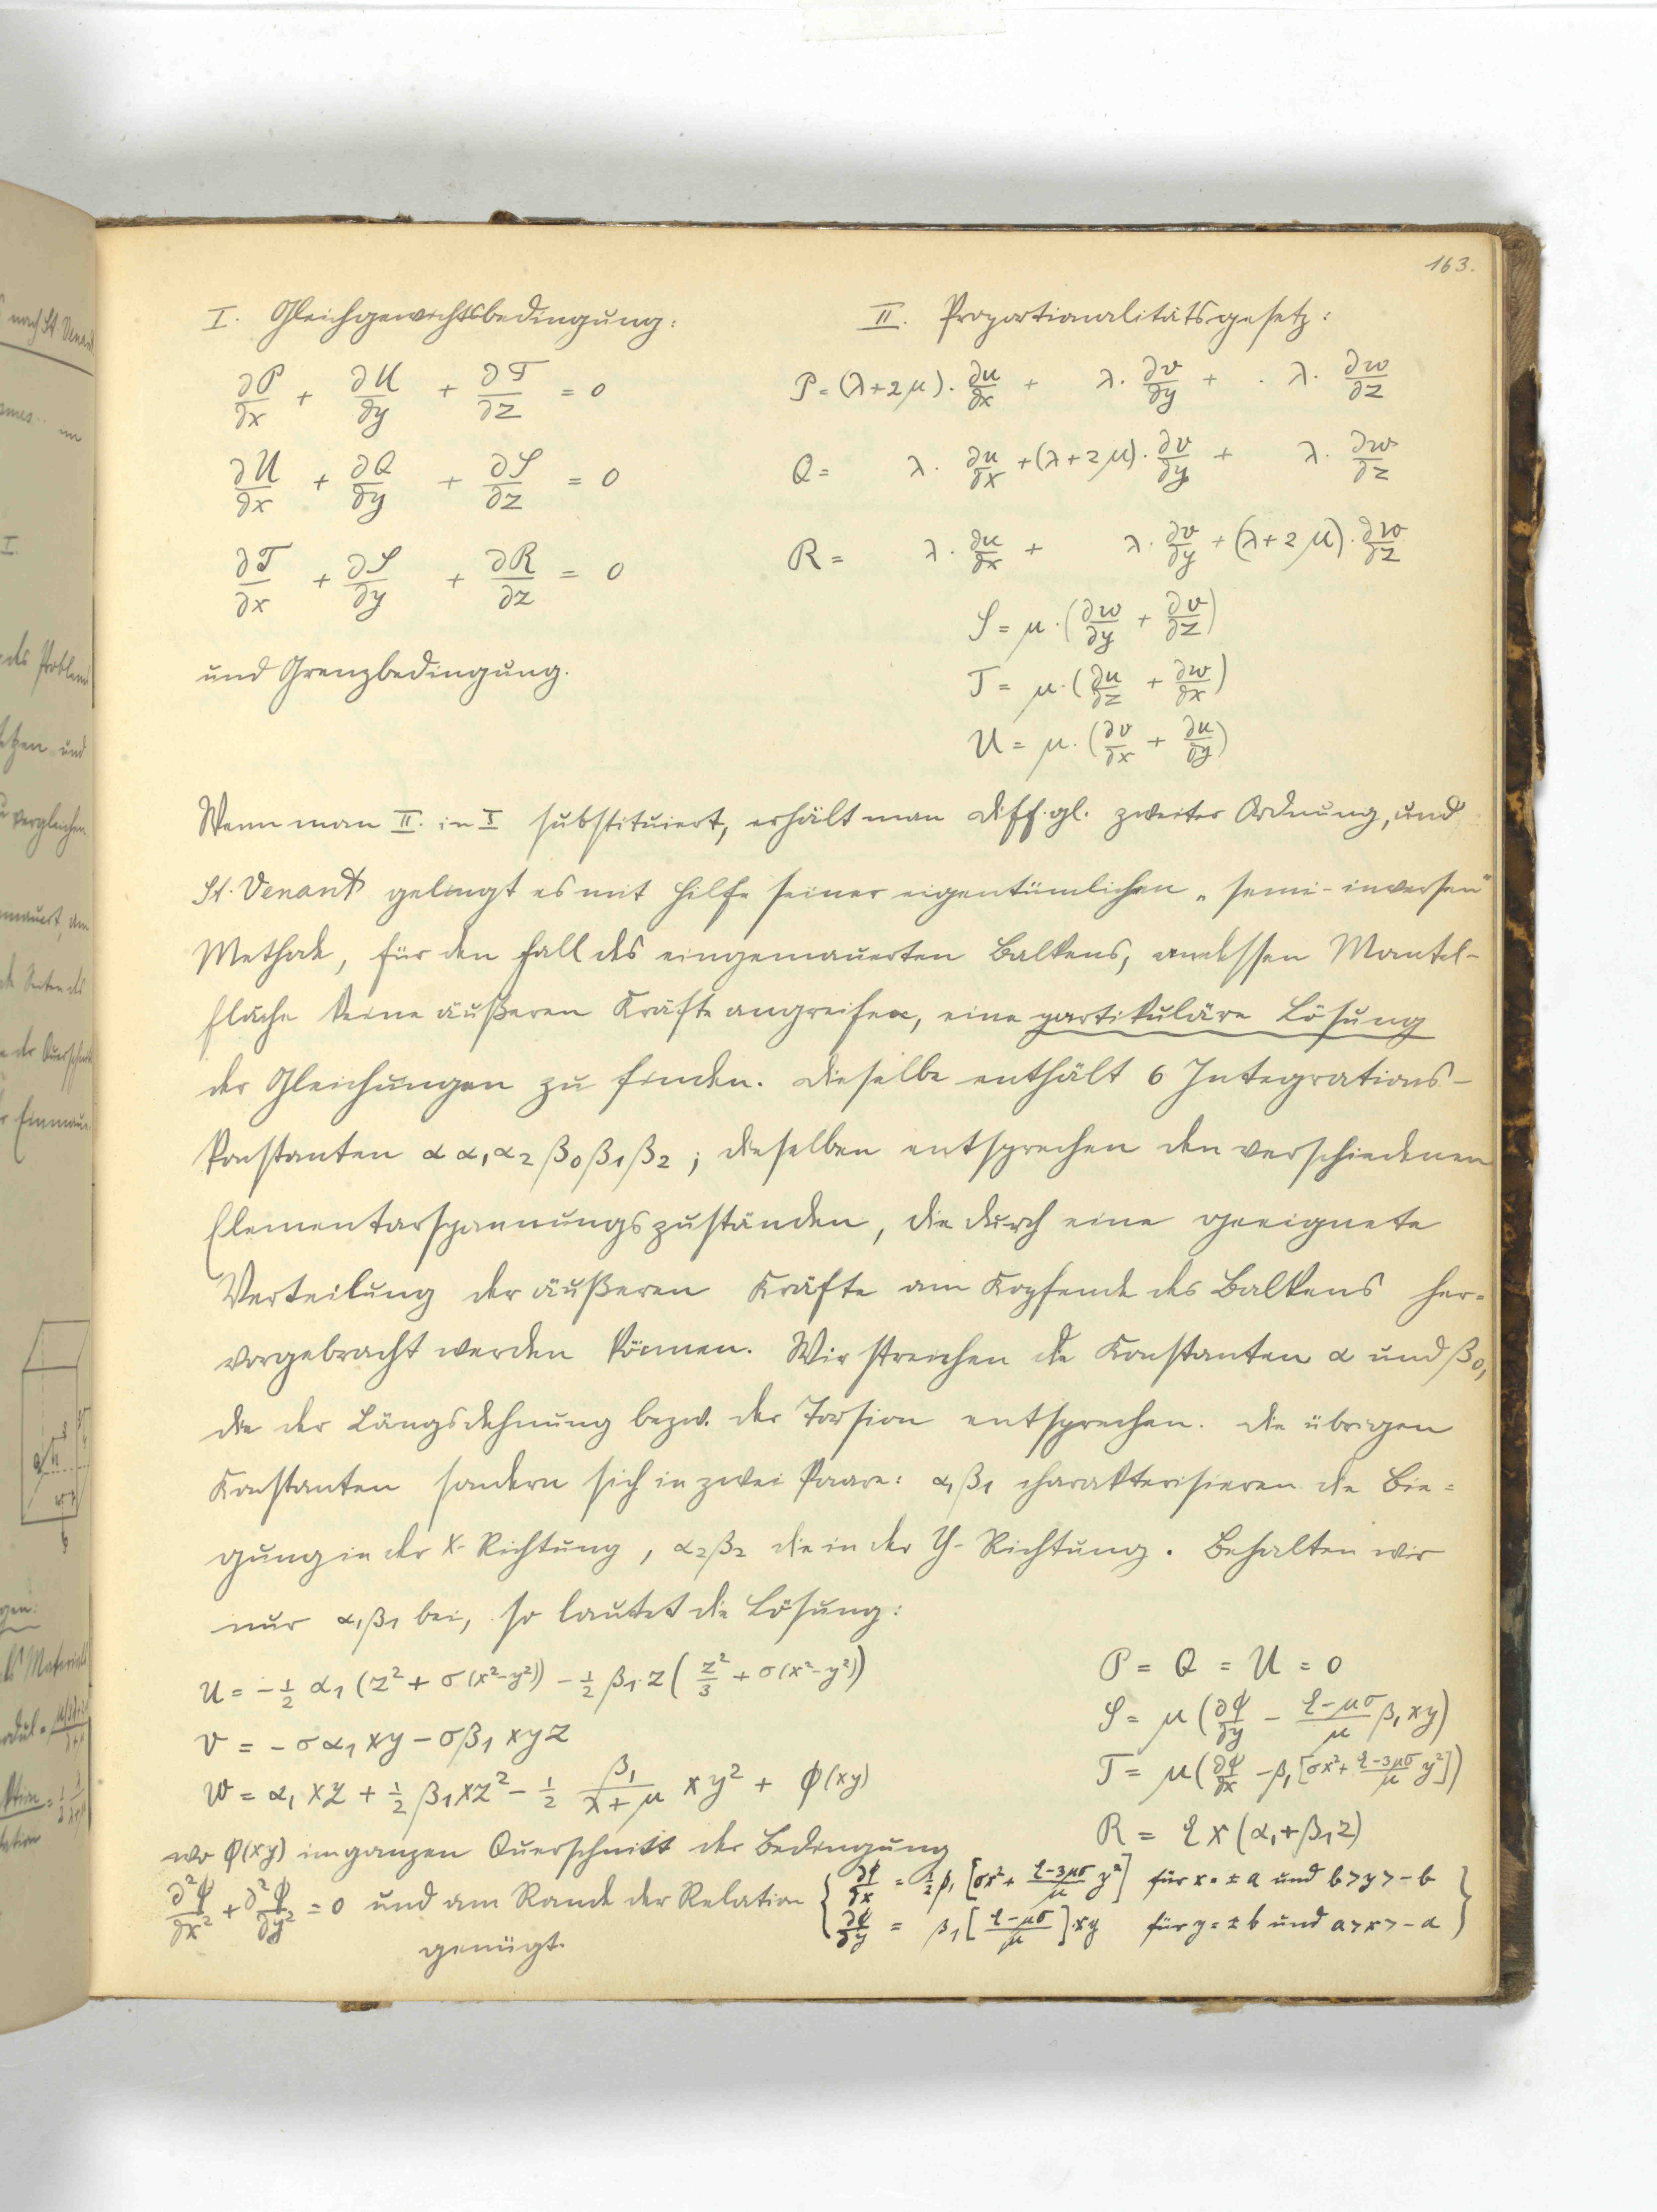 163.
I. Gleichgewichtsbedingung:
∂P/∂x + ∂U/∂y + ∂T/∂z = 0
∂U/∂x + ∂Q/∂y + ∂S/∂z = 0
∂T/∂x + ∂S/∂y + ∂R/∂z = 0
und Grenzbedingung.
II. Proportionalitätsgesetz:
P = (λ+2μ) · ∂u/∂x + λ · ∂v/∂y + · λ · ∂w/∂z
Q = λ · ∂u/∂x + (λ+2μ) · ∂v/∂y + λ · ∂w/∂z
R = λ · ∂u/∂x + λ · ∂v/∂y + (λ+2μ) · ∂w/∂z
S = μ · (∂w/∂y + ∂v/∂z)
T = μ · (∂u/∂z + ∂w/∂x)
U = μ · (∂v/∂x + ∂u/∂y)
Wenn man II. in I substituiert, erhält man Diff.gl. zweiter Ordnung, und
St. Venant gelingt es mit Hilfe seiner eigentümlichen „semi-inversen"
Methode, für den Fall des eingemauerten Balkens, an dessen Mantel-
fläche keine äußeren Kräfte angreifen, eine partikuläre Lösung
der Gleichungen zu finden. Dieselbe enthält 6 Integrations-
konstanten α α₁ α₂ β₀ β₁ β₂ ; dieselben entsprechen den verschiedenen
Elementarspannungszuständen, die durch eine geeignete
Verteilung der äußeren Kräfte am Kopfende des Balkens her-
vorgebracht werden können. Wir streichen die Konstanten α und β₀,
die der Längsdehnung bezw. der Torsion entsprechen. Die übrigen
Konstanten sondern sich in zwei Paare: α₁β₁ charakterisieren die Bie-
gung in der X-Richtung, α₂β₂ die in der Y-Richtung. Behalten wir
nur α₁β₁ bei, so lautet die Lösung:
u = -½ α₁ (z² + σ(x²-y²)) - ½ β₁ · z (z²/3 + σ(x²-y²))
v = -σα₁xy - σβ₁xyz
w = α₁xz + ½ β₁xz² - ½ β₁/(λ+μ) xy² + φ(xy)
P = Q = U = 0
S = μ (∂φ/∂y - (ℓ-μσ)/μ β₁xy)
T = μ (∂φ/∂x - β₁[σx² + (ℓ-3μσ)/μ y²])
R = ℓx (α₁+β₁z)
wo φ(xy) im ganzen Querschnitt der Bedingung
∂²φ/∂x² + ∂²φ/∂y² = 0 und am Rande der Relation { ∂φ/∂x = ½β₁ [σx² + (ℓ-3μσ)/μ y²] für x = ±a und b>y>-b
∂φ/∂y = β₁ [(ℓ-μσ)/μ] · xy für y = ±b und a>x>-a }
genügt.